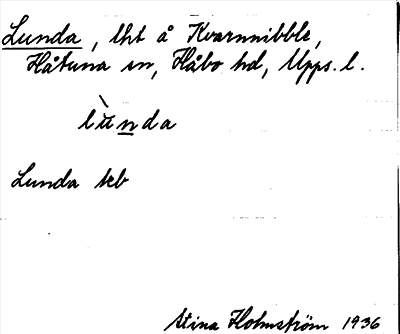 Lunda, lht å Kvarnnibble,
Håtuna sn, Håbo hd, Upps. l.
lùnda
Lunda teb
Stina Holmström 1936